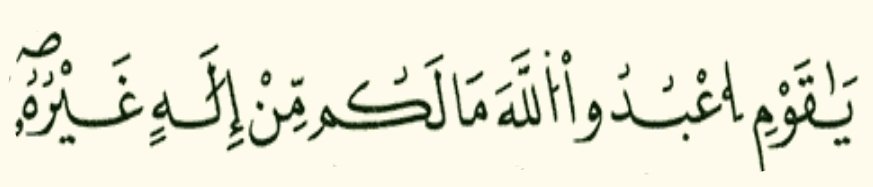 يَـٰقَوْمِ ٱعْبُدُوا۟ ٱللَّهَ مَا لَكُم مِّنْ إِلَـٰهٍ غَيْرُهُۥٓ ۖ